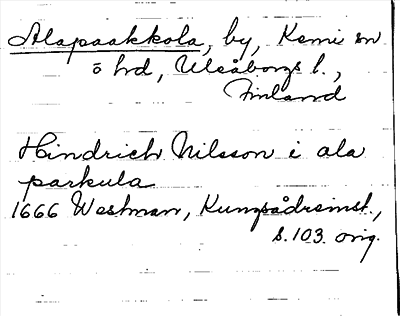 Alapaakkola, by, Kemi sn
o hd, Uleåborgs l.,
Finland
Hindrich Nilsson i ala
parkula
1666 Westman, Kungsådreinst.,
s. 103. orig.